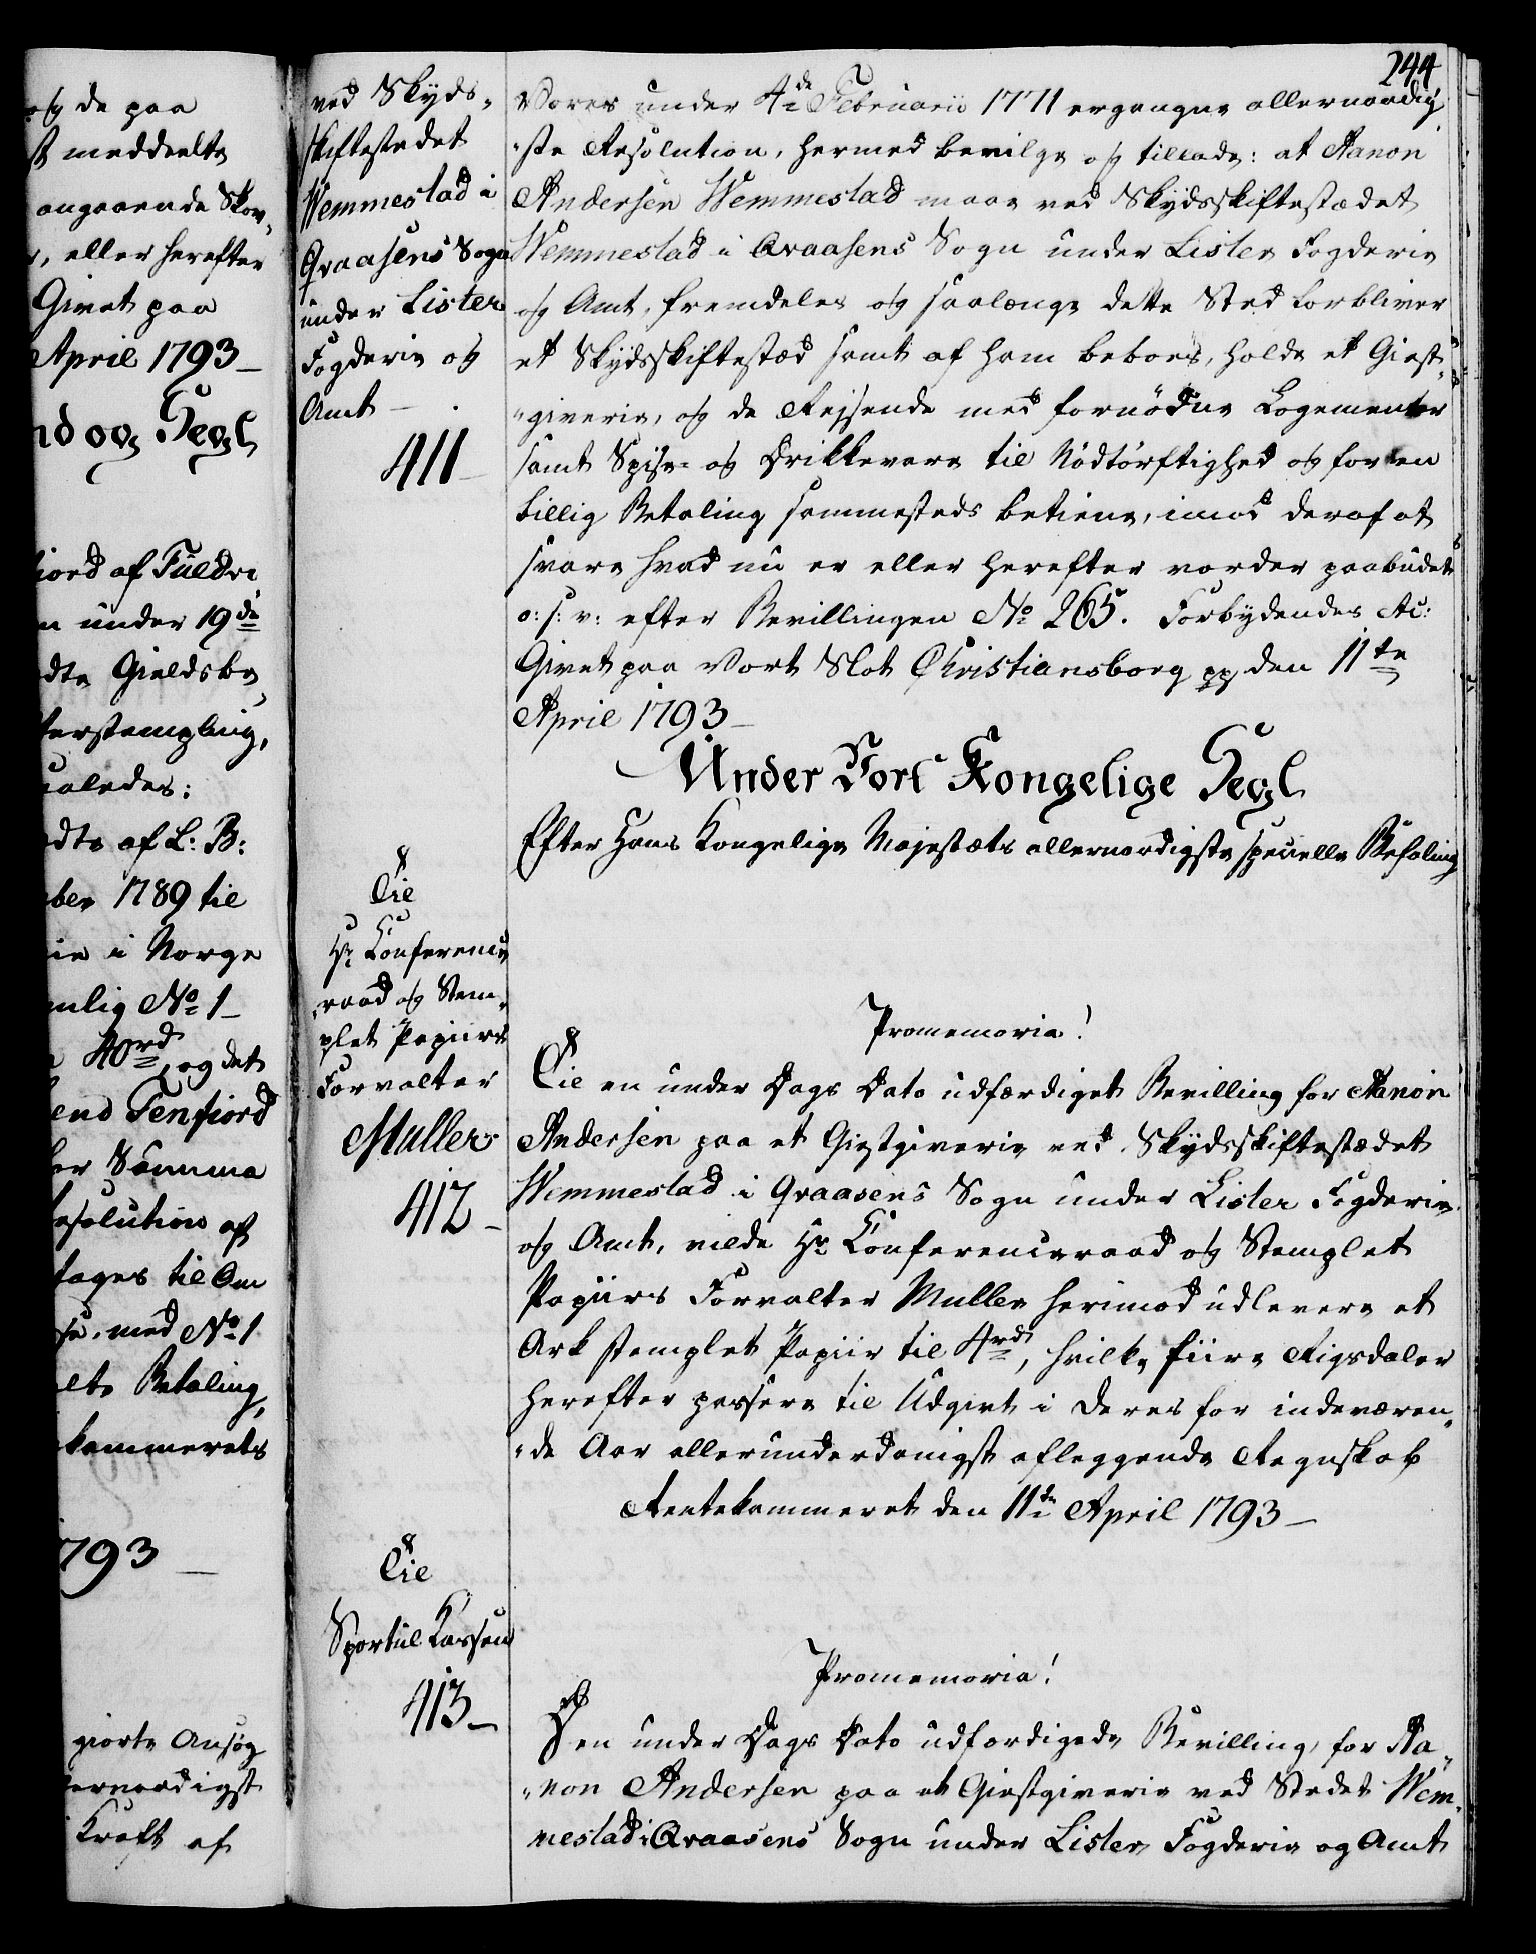 og de paa
st meddeelte
angaaende Skov-
r, eller herefter
Givet paa
April 1793 –
nd og Segl
fiord af Fuldri
n under 19de
dte Gieldsbe-
terstempling,
saaledes:
edte af L: B:
ber 1789 til
ie i Norge
mlig No 1 –
40 rd, og det
end Tenfiord
her Summa
Resolution af
tages til Om
med No 1
elte Betaling,
kammerets
1793 –
giorte Ansøg
lernaadigst
Kraft af
244
ved Skyds-
skiftestedet
Wemmestad i
Qvaasens Sogn
under Lister
Fogderie og
Amt –
411 –
Vores under 4de Februarii 1771 ergangne allernaadig-
"ste Resolution, hermed bevilge og tillade: at Aanon
Andersen Wemmestad maae ved Skydsskiftestædet
Wemmestad i Qvaasens Sogn under Lister Fogderie
og Amt, fremdeles og saalænge dette Sted forbliver
et Skydsskiftestæd samt af ham beboes, holde et Giest-
"giverie, og de Reisende med fornödne Logementer
samt Spise- og Drikkevare til Nödtörftighed og for en
billig Betaling sammesteds betiene, imod deraf at
svare hvad nu er eller herefter vorder paabudet
o: s: v: efter Bevillingen No 265. Forbydendes etc:
Givet paa Vort Slot Christiansborg pp den 11te
April 1793 –
Under Vort Kongelige Segl
Efter Hans Kongelige Majestæts allernaadigste specielle Befaling
Til
Hr Conference-
"raad og Stem-
plet Papiirs
Forvalter
Muller
412 –
Promemoria!
Til en under Dags Dato udfærdiget Bevilling for Aanon
Andersen paa et Giestgiverie ved Skydsskiftestædet
Wemmestad i Qvaasens Sogn under Lister Fogderie
og Amt, vilde Hr Conferenceraad og Stemplet
Papiirs Forvalter Muller herimod udlevere et
Ark stemplet Papiir til 4 rd, hvilke fiire Rigsdaler
herefter passere til Udgivt i Deres for indeværen-
"de Aar allerunderdanigst aflæggende Regnskab
Rentekammeret den 11te April 1793 –
Til
Sportul Kassen
413 –
Promemoria!
Den under Dags Dato udfærdigede Bevilling, for Aa-
"non Andersen paa et Giestgiverie ved Stedet Wem-
mestad i Qvaasens Sogn under Lister Fogderie og Amt